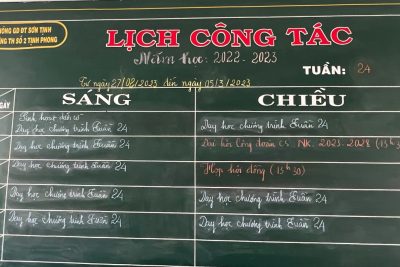 PHÒNG GD ĐT SƠN TỊNH
TRƯỜNG TH SỐ 2 TỊNH PHONG
LỊCH CÔNG TÁC
Năm học: 2022 - 2023
TUẦN: 24
Từ ngày 27/08/2023 đến ngày 05/3/2023
NGÀY SÁNG CHIỀU
Sinh hoạt dưới cờ
Dạy học chương trình Tuần 24 Dạy học chương trình Tuần 24
Dạy học chương trình Tuần 24 Đại hội Công đoàn CS. NK. 2023-2028 (15h
Dạy học chương trình Tuần 24 Họp hội đồng (15h30)
Dạy học chương trình Tuần 24 Dạy học chương trình Tuần 24
Dạy học chương trình Tuần 24 Dạy học chương trình Tuần 24